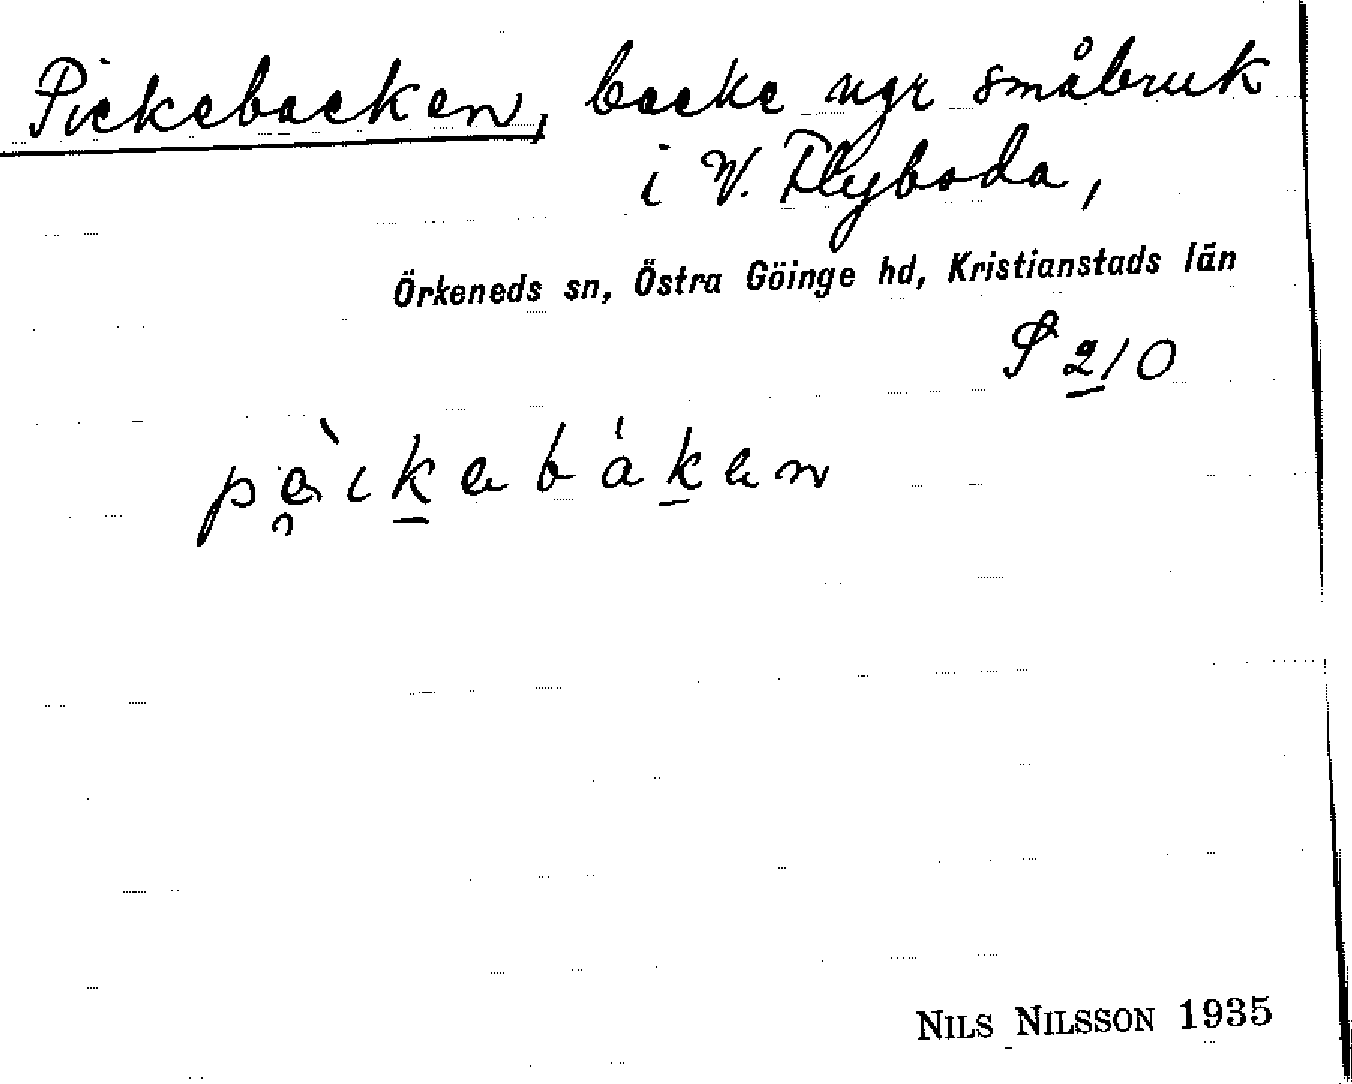 Pickebacken, backe ngr småbruk
i V. Flyboda,
Örkeneds sn, Östra Göinge hd, Kristianstads län
S 210
pèikabákan
NILS NILSSON 1935